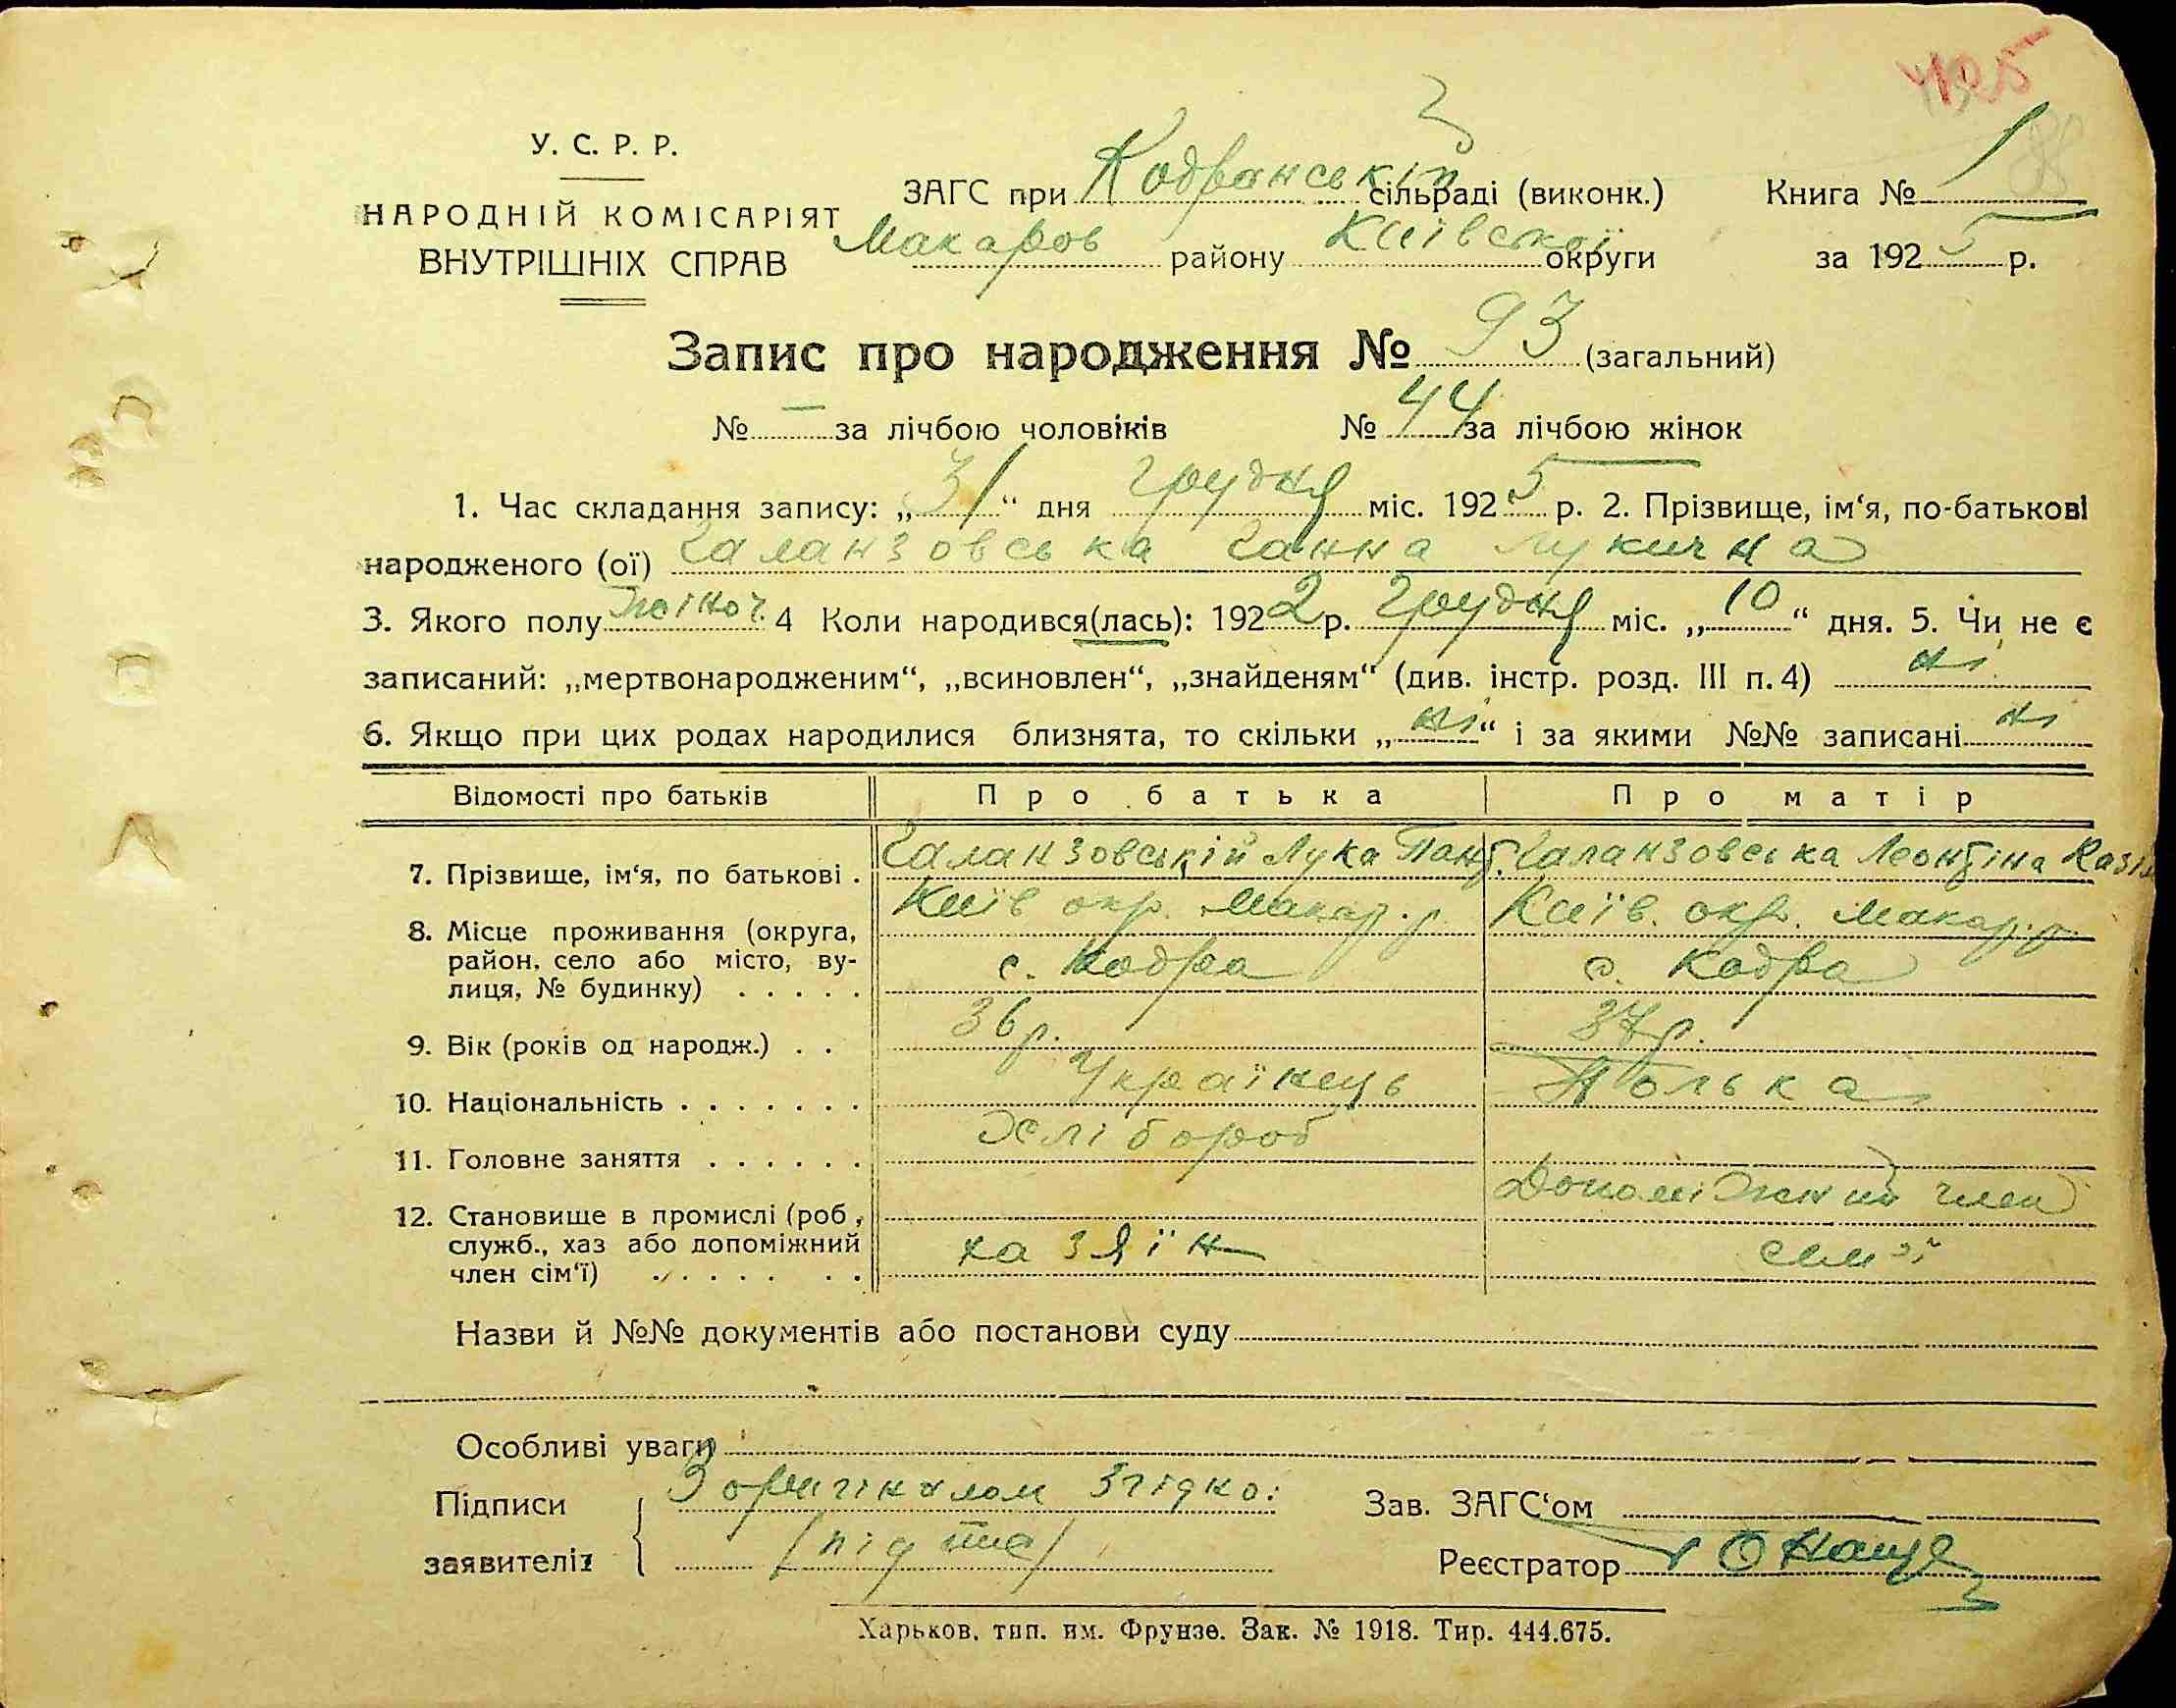 425
У. С. Р. Р.
НАРОДНІЙ КОМІСАРІЯТ
ВНУТРІШНІХ СПРАВ
ЗАГС при Кодранській сільраді (виконк.) Книга № 1
Макаров району Київської округи за 1925 р.
Запис про народження № 93 (загальний)
№ — за лічбою чоловіків № 44 за лічбою жінок
1. Час складання запису: „31“ дня грудня міс. 1925 р. 2. Прізвище, ім‘я, по-батькові
народженого (ої) Галанзовська Ганна Лукична
3. Якого полу жіноч. 4 Коли народився(лась): 1922 р. Грудня міс. „10“ дня. 5. Чи не є
записаний: „мертвонародженим“, „всиновлен“, „знайденям“ (див. інстр. розд. III п. 4) ні
6. Якщо при цих родах народилися близнята, то скільки „ні“ і за якими №№ записані ні
Відомості про батьків Про батька Про матір
7. Прізвище, ім‘я, по батькові . Галанзовській Лука Пант. Галанзовська Леонтіна Казім
8. Місце проживання (округа, Київ окр. Макар. р. Київ. окр. Макар. р.
район, село або місто, ву- с. Кодра с. Кодра
лиця, № будинку) . . . . .
9. Вік (років од народж.) . . 36 р. 37 р.
10. Національність . . . . . . . Українець Полька
11. Головне заняття . . . . . . Хлібороб
12. Становище в промислі (роб., Допоміжний член
служб., хаз або допоміжний хазяїн сімї
член сім‘ї) . . . . . . .
Назви й №№ документів або постанови суду
Особливі уваги
Підписи З оригіналом згідно: Зав. ЗАГС‘ом
заявителів (підпис) Реєстратор
Харьков, тип. им. Фрунзе. Зак. № 1918. Тир. 444.675.